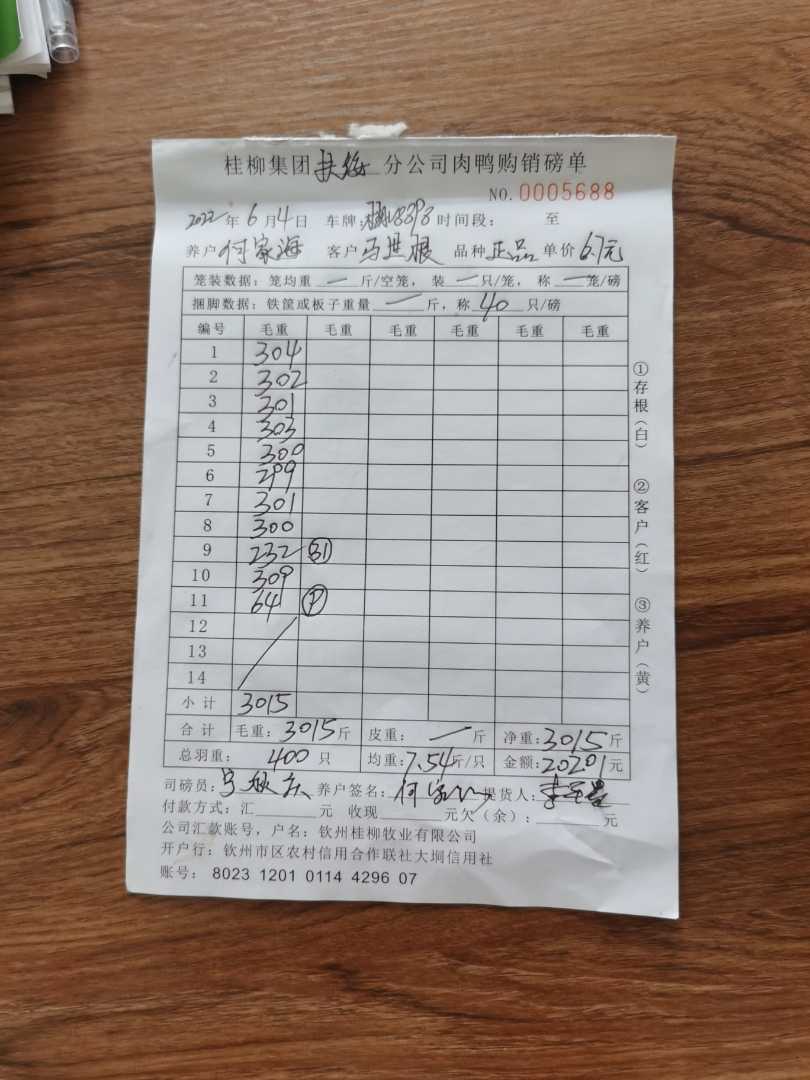 桂柳集团扶绥分公司肉鸭购销磅单
NO. 0005688
2022年6月4日 车牌: 时间段: 至
养户 何家海 客户 马世根 品种 正品 单价 6.7元
笼装数据: 笼均重 — 斤/空笼, 装 — 只/笼, 称 — 笼/磅
捆脚数据: 铁筐或板子重量 — 斤, 称 40 只/磅
编号 毛重 毛重 毛重 毛重 毛重 毛重
1 304
2 302
3 301
4 303
5 300
6 299
7 301
8 300
9 232 31
10 309
11 64 P
12
13
14
小计 3015
合计 毛重: 3015斤 皮重: — 斤 净重: 3015斤
总羽重: 400 只 均重: 7.54斤/只 金额: 20201元
司磅员: 养户签名: 提货人:
付款方式: 汇 元 收现 元欠(余): 元
公司汇款账号, 户名: 钦州桂柳牧业有限公司
开户行: 钦州市区农村信用合作联社大垌信用社
账号: 8023 1201 0114 4296 07
①存根(白) ②客户(红) ③养户(黄)